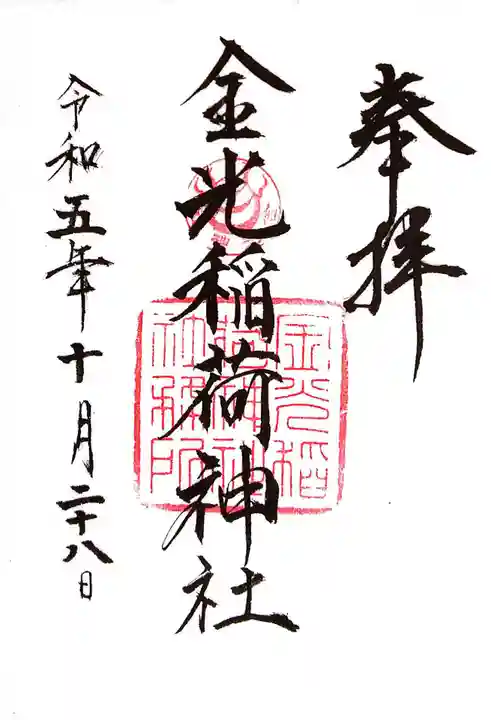 奉拝
金光稲荷神社
金光稲荷神社務所
令和五年十月二十八日